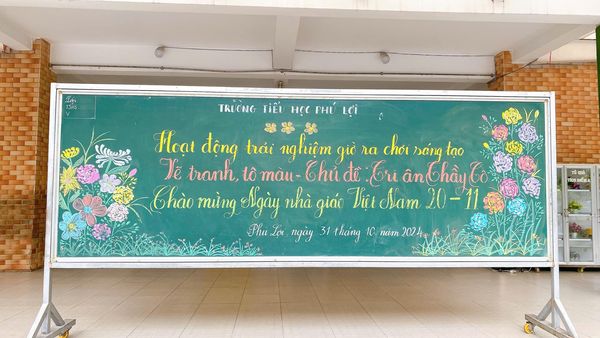 TRƯỜNG TIỂU HỌC PHÚ LỢI
Hoạt động trải nghiệm giờ ra chơi sáng tạo
Vẽ tranh, tô màu - Chủ đề: Tri ân Thầy Cô
Chào mừng Ngày nhà giáo Việt Nam 20-11
Phú Lợi, ngày 31 tháng 10 năm 2024